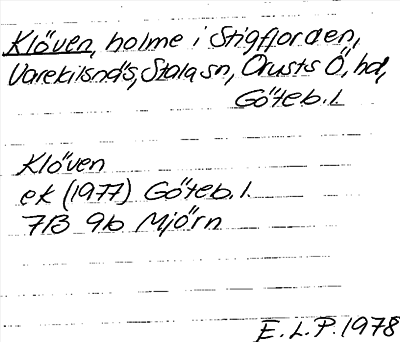 Klöven, holme i Stigfjorden,
Varekilsnäs, Stala sn, Orusts Ö, hd,
Göteb. L
Klöven
ek (1977) Göteb. l.
7B 9b Mjörn
E. L. P. 1978